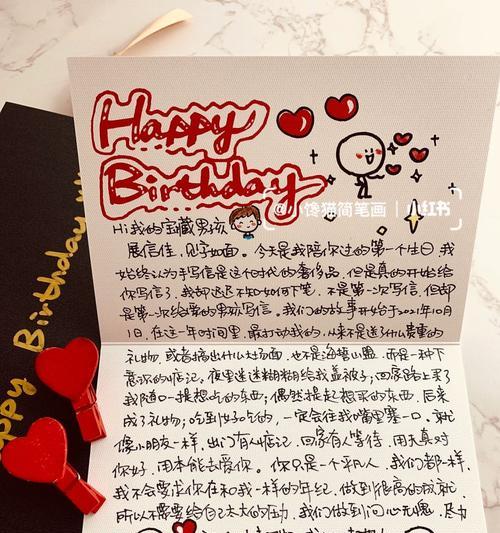 Happy
Birthday
@小馋猫简笔画 小红书
Hi 我的宝藏男孩
展信佳，见字如面。今天是我陪你过的第一个生日，我
始终认为手写信是这个时代的奢侈品，但是真的开始给
你写信了，我却迟迟不知如何下笔，不是第一次写信，但却
是第一次给爱的男孩写信。我们的故事开始于2021年10月
1日，在这一年时间里，最打动我的，从来不是送什么贵重的
礼物，或者搞出什么大场面，也不是海誓山盟，而是一种下
意识的惦记。夜里迷迷糊糊给我盖被子；回家路上买了
我随口一提想吃的东西；偶然提起想买的东西，后来
成了礼物；吃到好吃的，一定会往我嘴里塞一口。就
像小朋友一样，出门有人惦记，回家有人等待，用天真对
你好，用本能去爱你。你只是一个平凡人，我们都一样，
我不会要求你在和我一样的年纪，做到很高的成就，
所以不需要给自己太大的压力，我们做到问心无愧，尽力
Happy Birthday